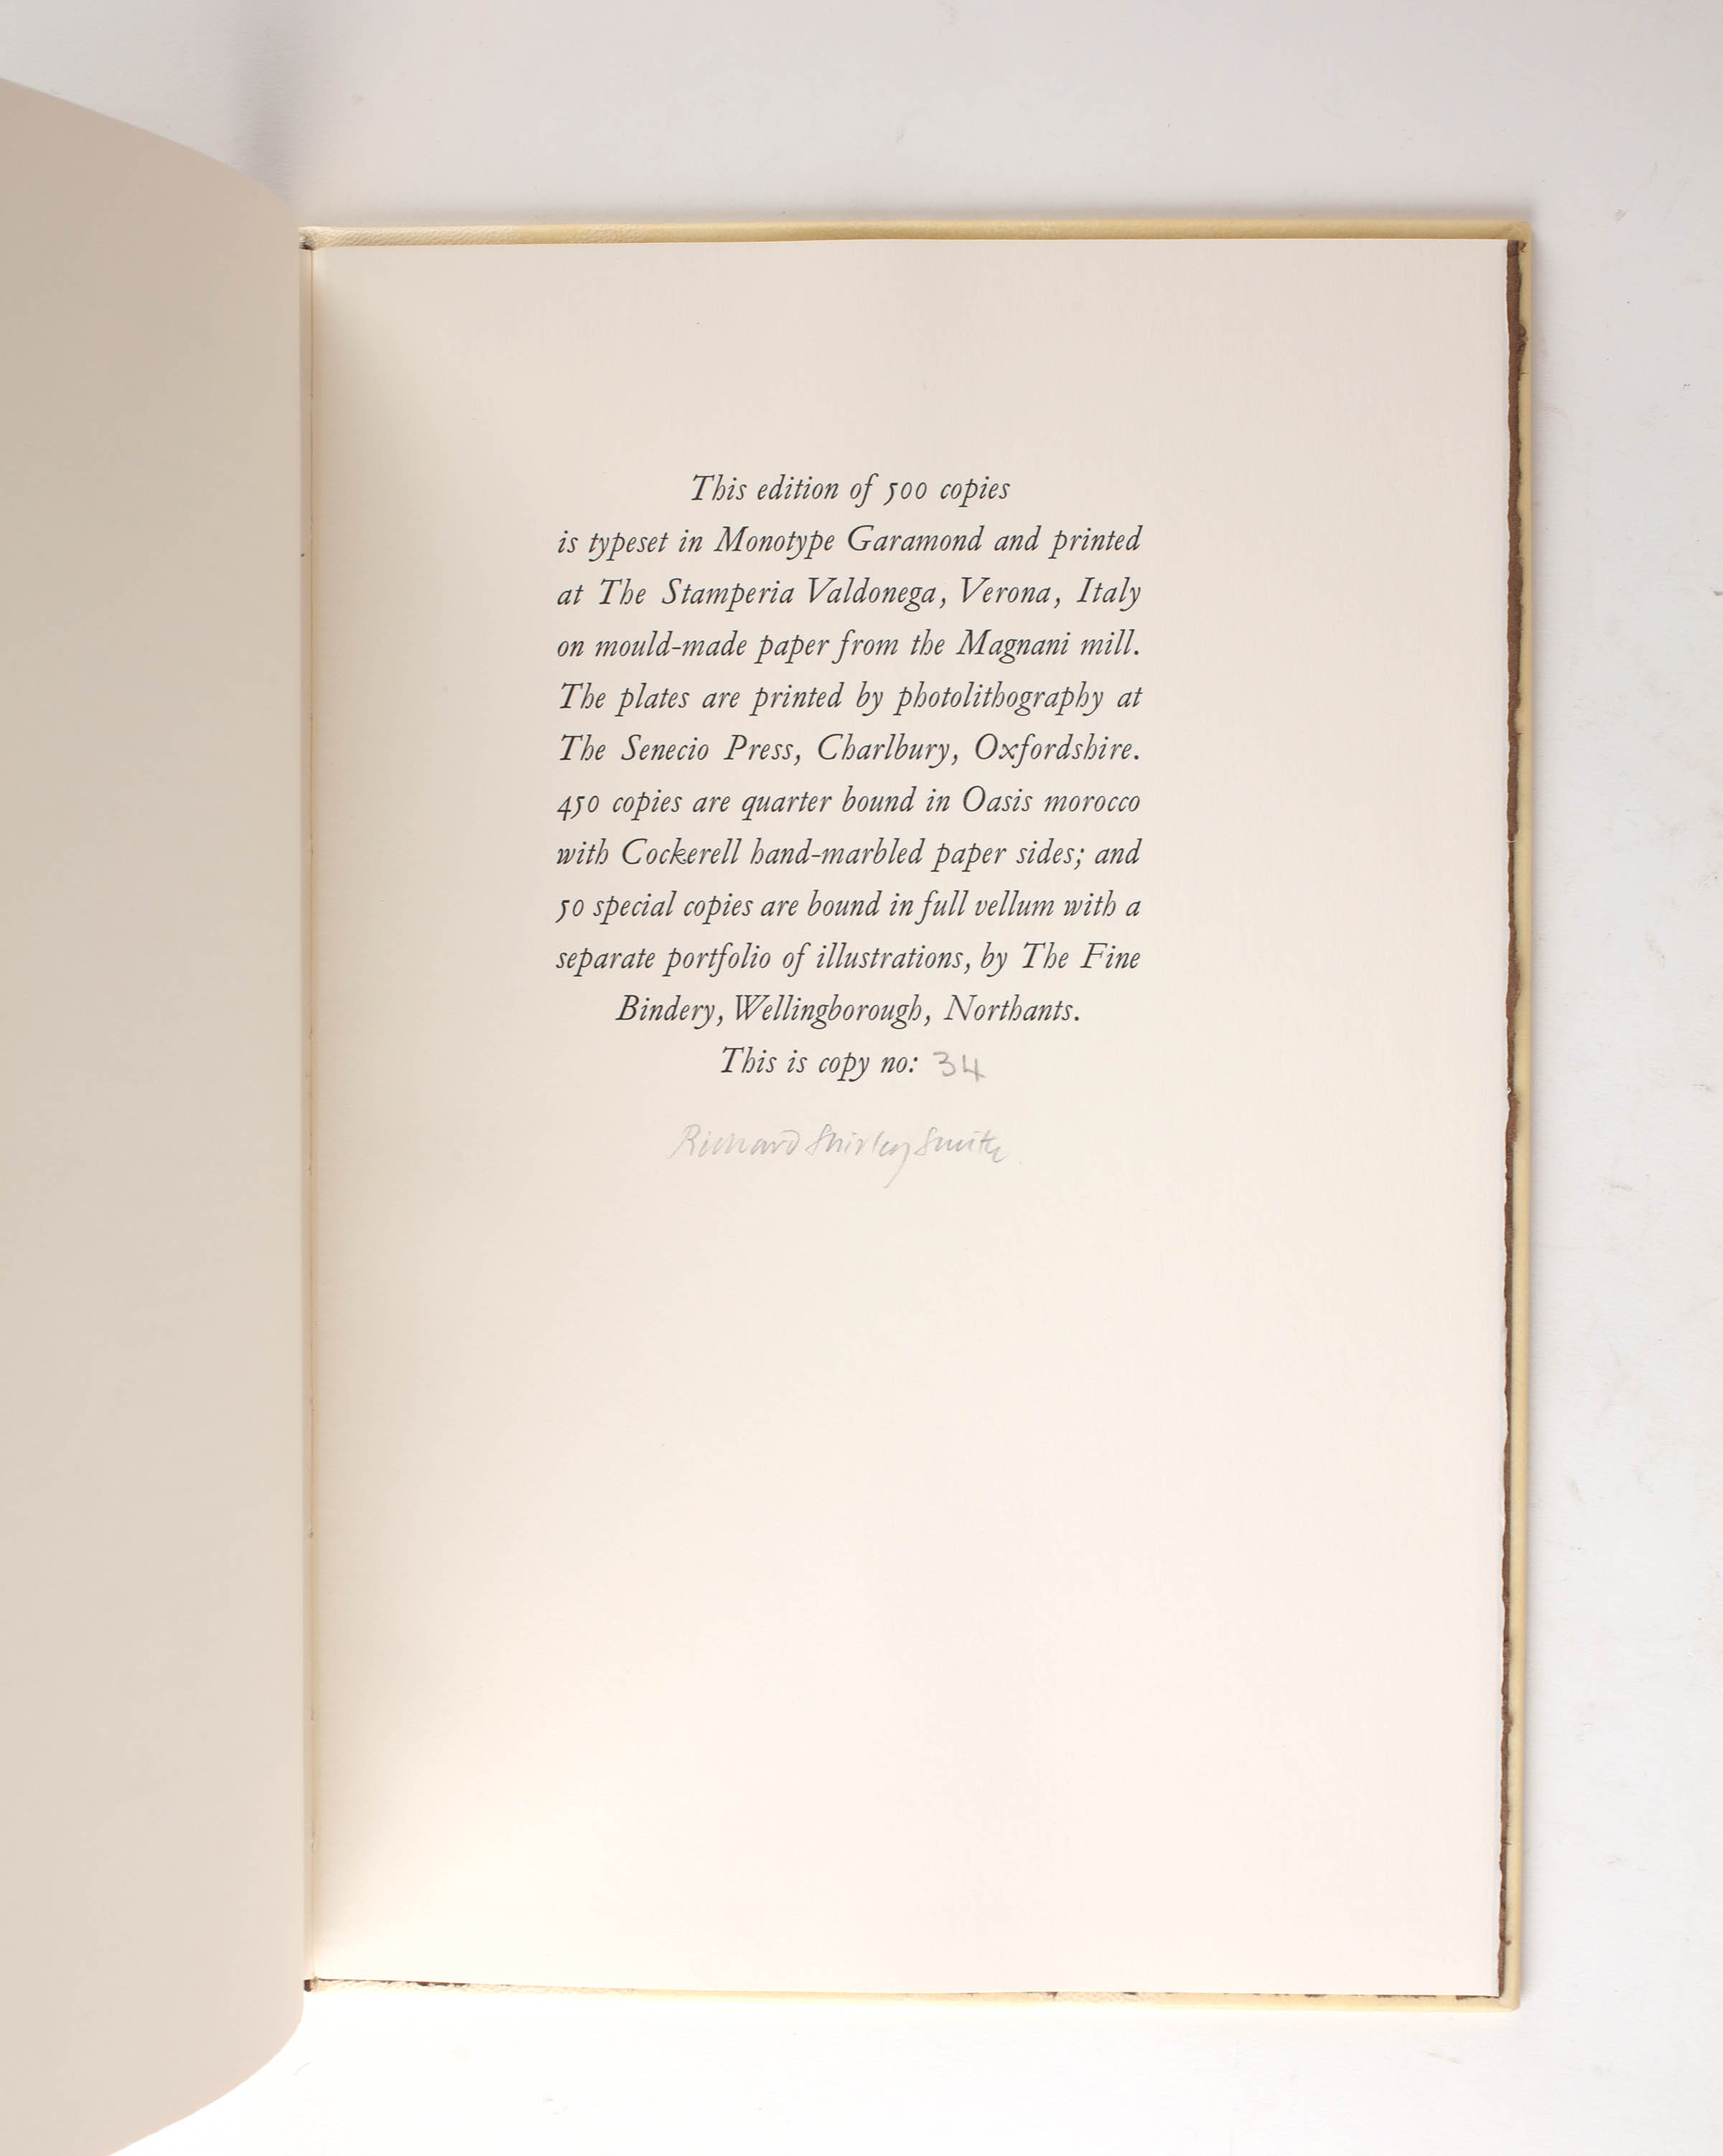 This edition of 500 copies
is typeset in Monotype Garamond and printed
at The Stamperia Valdonega, Verona, Italy
on mould-made paper from the Magnani mill.
The plates are printed by photolithography at
The Senecio Press, Charlbury, Oxfordshire.
450 copies are quarter bound in Oasis morocco
with Cockerell hand-marbled paper sides; and
50 special copies are bound in full vellum with a
separate portfolio of illustrations, by The Fine
Bindery, Wellingborough, Northants.
This is copy no: 34
Richard Shirley Smith